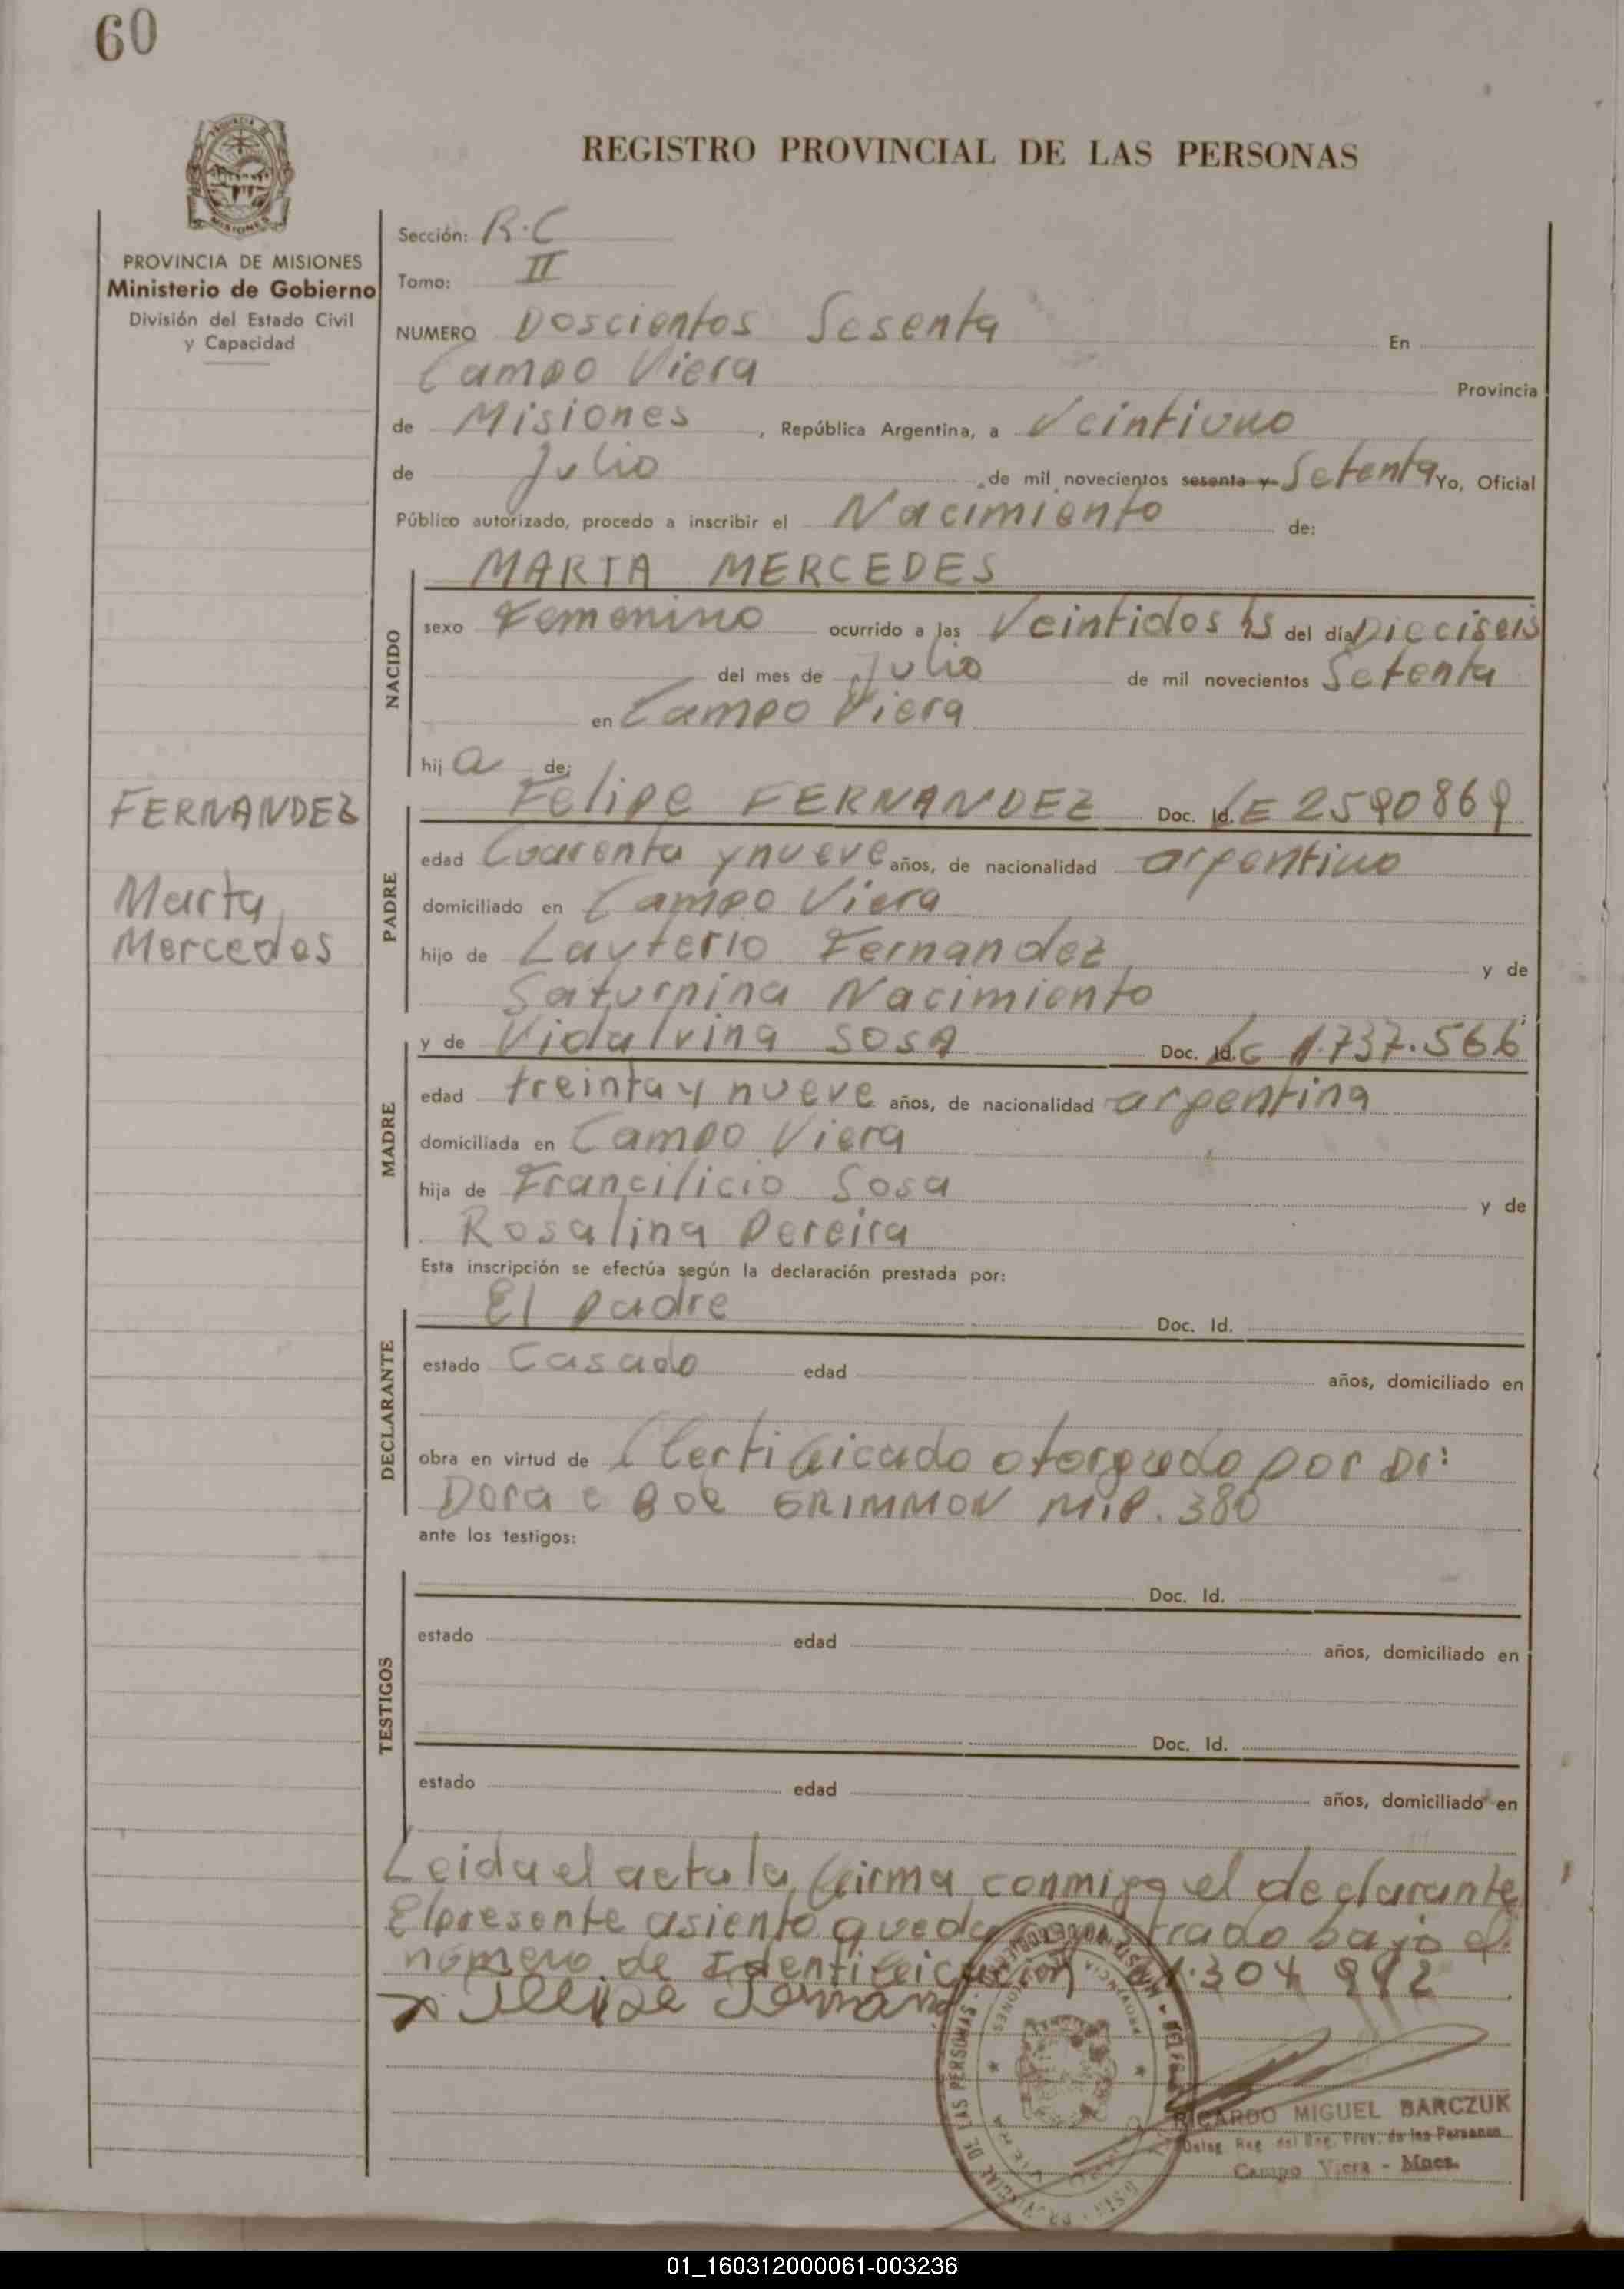 60
REGISTRO PROVINCIAL DE LAS PERSONAS
PROVINCIA DE MISIONES
Ministerio de Gobierno
División del Estado Civil
y Capacidad
Sección: R.C
Tomo: II
NUMERO Doscientos Sesenta En
Campo Viera Provincia
de Misiones, República Argentina, a Veintiuno
de Julio de mil novecientos sesenta y Setenta Yo, Oficial
Público autorizado, procedo a inscribir el Nacimiento de:
NACIDO
MARTA MERCEDES
sexo Femenino ocurrido a las Veintidos hs del día Dieciseis
del mes de Julio de mil novecientos Setenta
en Campo Viera
hij a de:
FERNANDEZ
Marta
Mercedes
PADRE
Felipe FERNANDEZ Doc. Id. LE 2590869
edad Cuarenta y nueve años, de nacionalidad argentino
domiciliado en Campo Viera
hijo de Layterio Fernandez y de
Saturnina Nacimiento
MADRE
y de Vidalvina SOSA Doc. Id. LC 1.737.566
edad treinta y nueve años, de nacionalidad argentina
domiciliada en Campo Viera
hija de Francilicio Sosa y de
Rosalina Pereira
Esta inscripción se efectúa según la declaración prestada por:
DECLARANTE
El padre Doc. Id.
estado Casado edad años, domiciliado en
obra en virtud de Certificado otorgado por Dr:
Dora GRIMMON M.P. 380
ante los testigos:
TESTIGOS
Doc. Id.
estado edad años, domiciliado en
Doc. Id.
estado edad años, domiciliado en
Leida el acta la firma conmigo el declarante
El presente asiento queda bajo el
número de Identificacion 21.304 992
RICARDO MIGUEL BARCZUK
Deleg. Reg. del Reg. Prov. de las Personas
Campo Viera - Mnes.
01_160312000061-003236